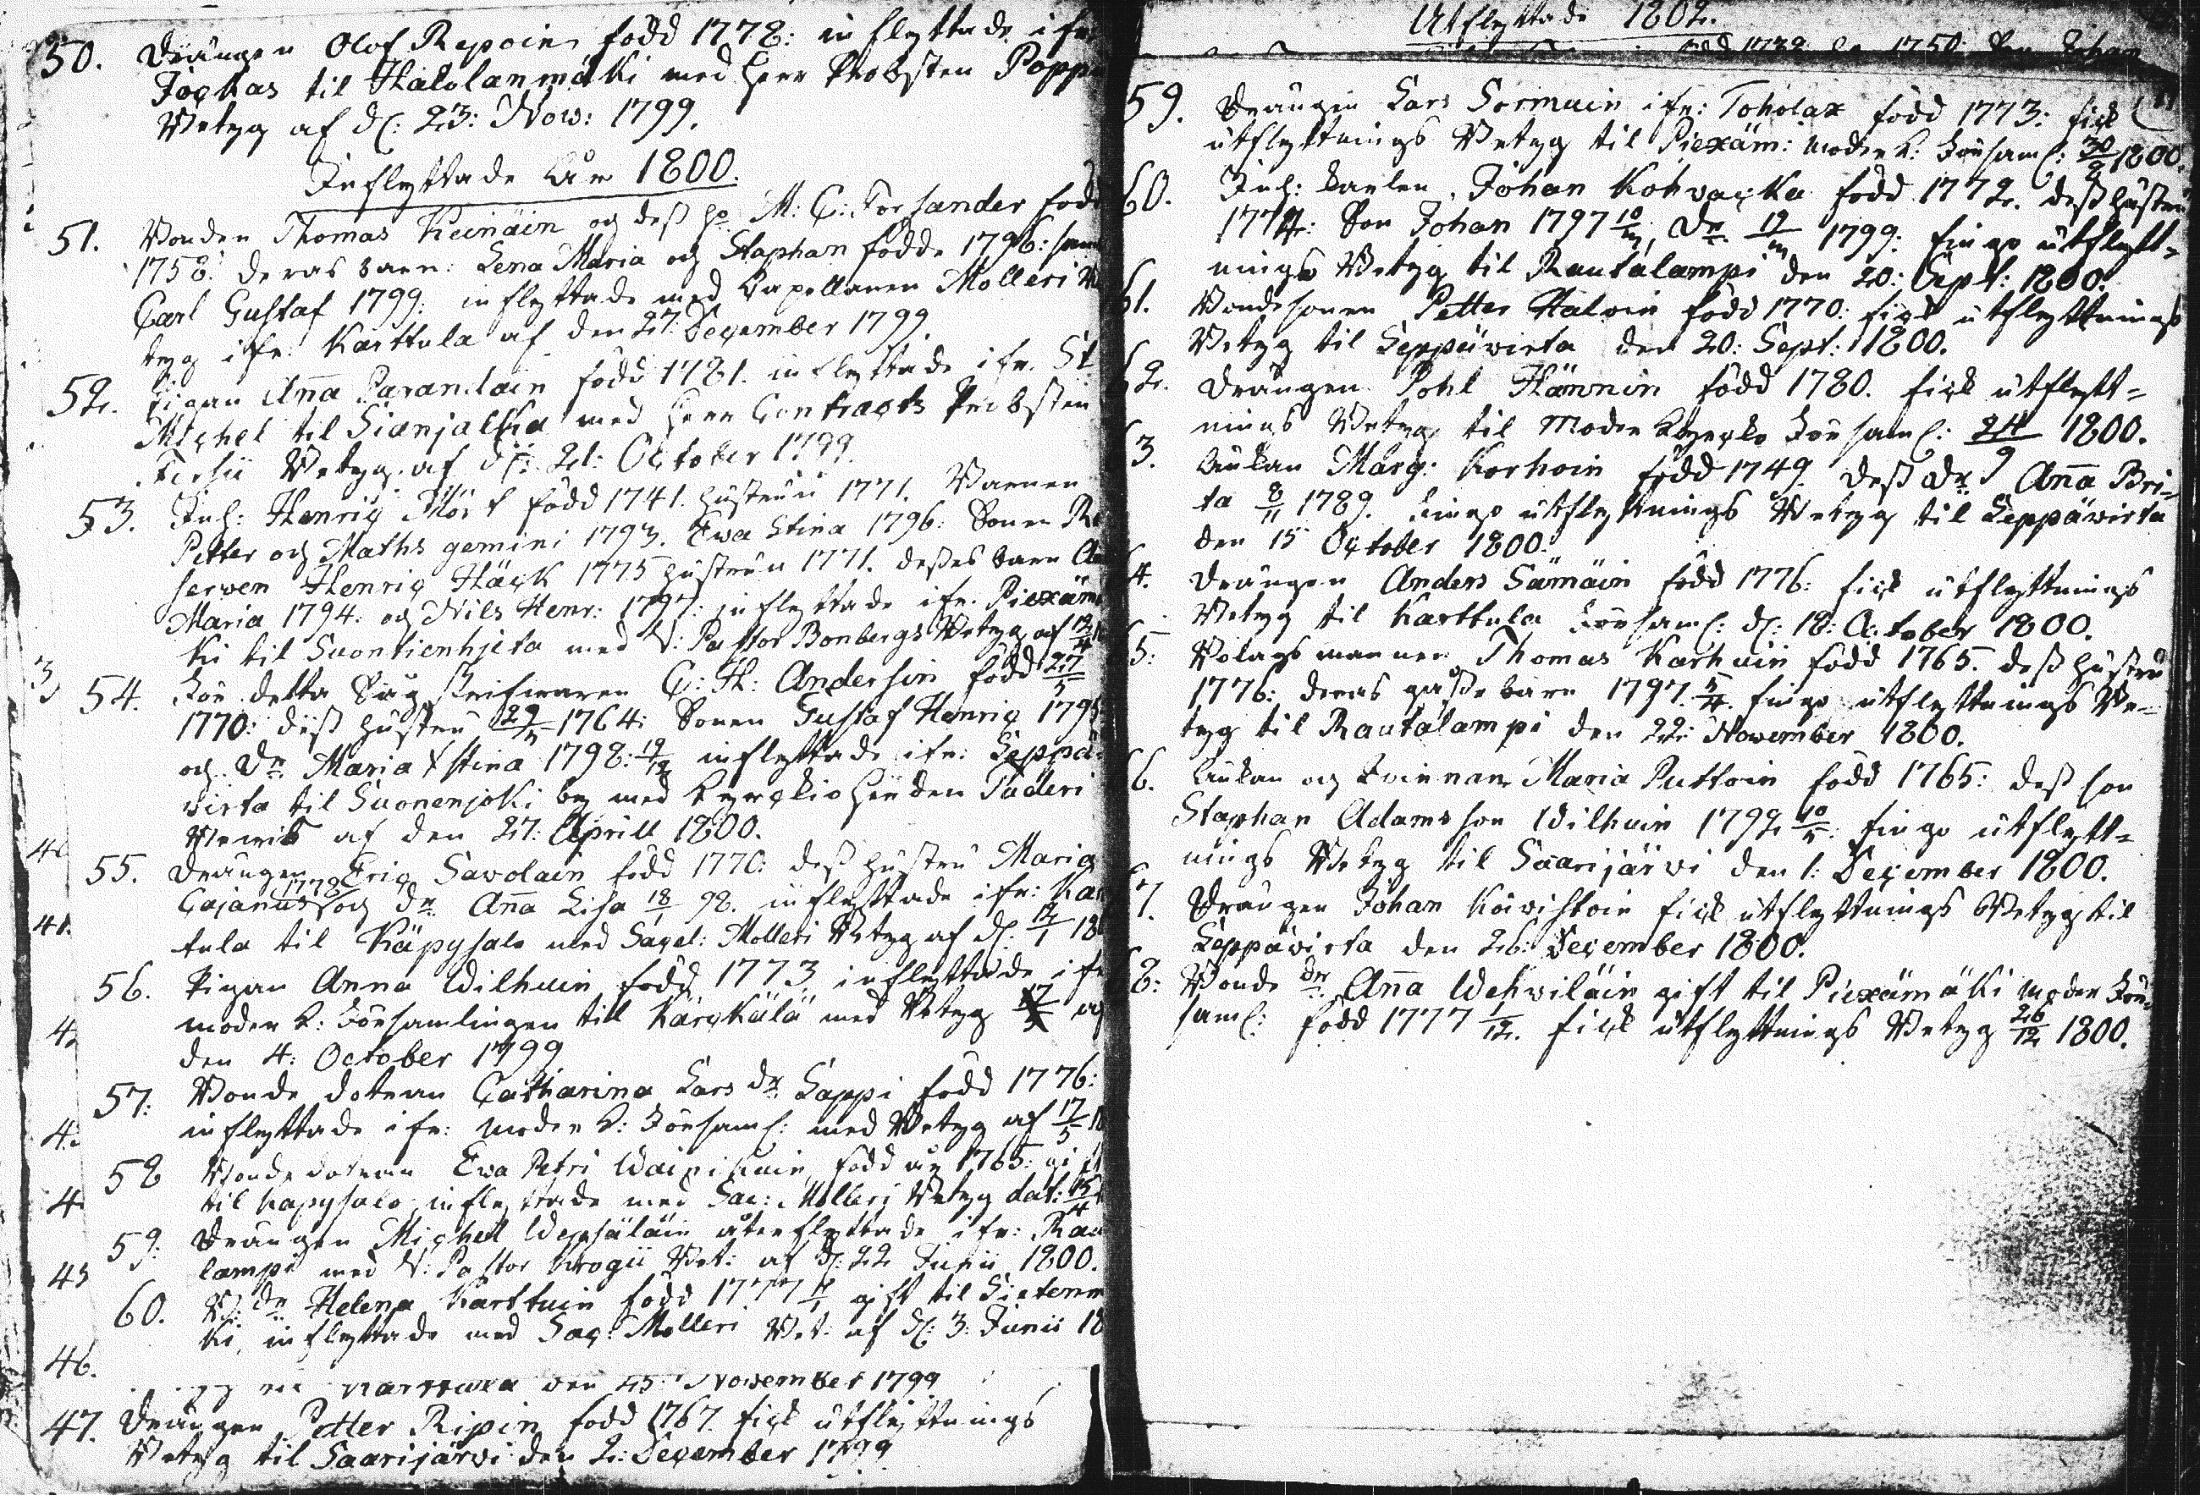 50. Drängen Olof Repoin född 1778: inflyttade ifr.
Jockas til Halolanmäki med Herr Probsten Popp
Betyg af d: 23: Nov: 1799.
Inflyttade År 1800.
51. Bonden Thomas Keinäin och dess h. M: C: Forsander född
1758: deras barn: Lena Maria och Staphan födde 1796: samt
Carl Gustaf 1799: inflyttade med Capellanen Molleri Be
tyg ifr: Karttula af den 27: December 1799.
52. Pigan Anna Parandain född 1781. inflyttade ifr. St.
Michel til Sianjalka med Herr Contracts Probsten
Betyg af d: 21: October 1799.
53. Inh: Henric Mört född 1741. hustrun 1771. Barnen
Petter och Maths gemini 1793. Ewa Stina 1796. Sonen Re
serven Henric Häck 1775 hustrun 1771. desses barn
Maria 1794. och Nils Henr: 1797: inflyttade ifr. Piexämä
ki til Suontienhjeta med V: Pastor Bonbergs Betyg af
54. För detta C: H: Andersin född 27/5
1770: dess hustru 29/ 1764: Sonen Gustaf Henric 179
och Dr Maria Xstina 1798: 19/12 inflyttade ifr: Leppä
virta til Suonenjoki by med Kyrckio Herden Poderi
af den 27: Aprill 1800.
55. Drängen Eric Savolain född 1770: dess hustru Maria
Cajanus 1778 och dr. Anna Lisa 18/1 98. inflyttade ifr: Kart
tula til Käpysalo med Sacel: Molleri Betyg af d: 12/1 18
56. Pigan Anna Wilhuin född 1773. inflyttade ifr
moder K: Församlingen till Kärckälä med Betyg af
den 4: October 1799
57: Bonde dotren Catharina Lars dr Lappi född 1776:
inflyttade ifr: moder K: Församl: med Betyg af 17/5
58 Bonde dotren Ewa Petri född år 1765: gift
til Kapysalo inflyttade med Sac: Molleri Betyg dat: 15/4
59: Drängen Michell Wepsäläin återflyttade ifr: Rau
lampi med V: Pastor Krogii Bet: af d: 22 Junii 1800.
60. B: dr Helena Karttuin född 1777 gift til Sietenm
ki, inflyttade med Sac: Molleri Bet: af d: 3: Junii 18
46.
Karttula den 25: November 1799
47. Drängen Petter Ripin född 1767. fick utflyttnings
Betyg til Saarijärvi den 2: December 1799
Utflyttade 1802.
59. Drängen Lars Sormuin ifr: Toholax född 1773: fick
utflyttnings Betyg til Piexäm: moder K: Församl: 30/8 1800.
60. Inh: karlen Johan Kohvacka född 1772. dess hustru
1774: Son Johan 1797 10/, Dr. 19/ 1799: fingo utflytt-
nings Betyg til Rautalampi den 20: Sept: 1800.
61. Bondesonen Petter Haloin född 1770: fick utflyttnings
Betyg til Leppävirta den 20: Sept: 1800.
62. Drängen Pohl Hämnin född 1780. fick utflytt-
nings Betyg til Moder Kyrcko Församl: 24/9 1800.
63. Änkan Marg: Korhoin född 1749. Dess Dr. Anna Bri-
ta 8/11 1789. fingo utflyttnings Betyg til Leppävirta
den 15 October 1800.
64. Drängen Anders Sämäin född 1776: fick utflyttnings
Betyg til Karttula Församl: d: 18: October 1800.
65: Bolagsmannen Thomas Karhuin född 1765. dess hustru
1776: deras gosse barn 1797. 5/4. fingo utflyttnings Be-
tyg til Rautalampi den 22: November 1800.
66. Änkan och Qvinnan Maria Puttoin född 1765: dess son
Staphan Adamsson Wilhuin 1792 10/5: fingo utflytt-
nings Betyg til Saarijärvi den 1: December 1800.
67. Drängen Johan Koivistoin fick utflyttnings Betyg til
Leppävirta den 26: December 1800.
68: Bonde dr Anna Wehviläin gift til Piexämäki moder För-
saml: född 1777 1/12. fick utflyttnings Betyg 26/12 1800.